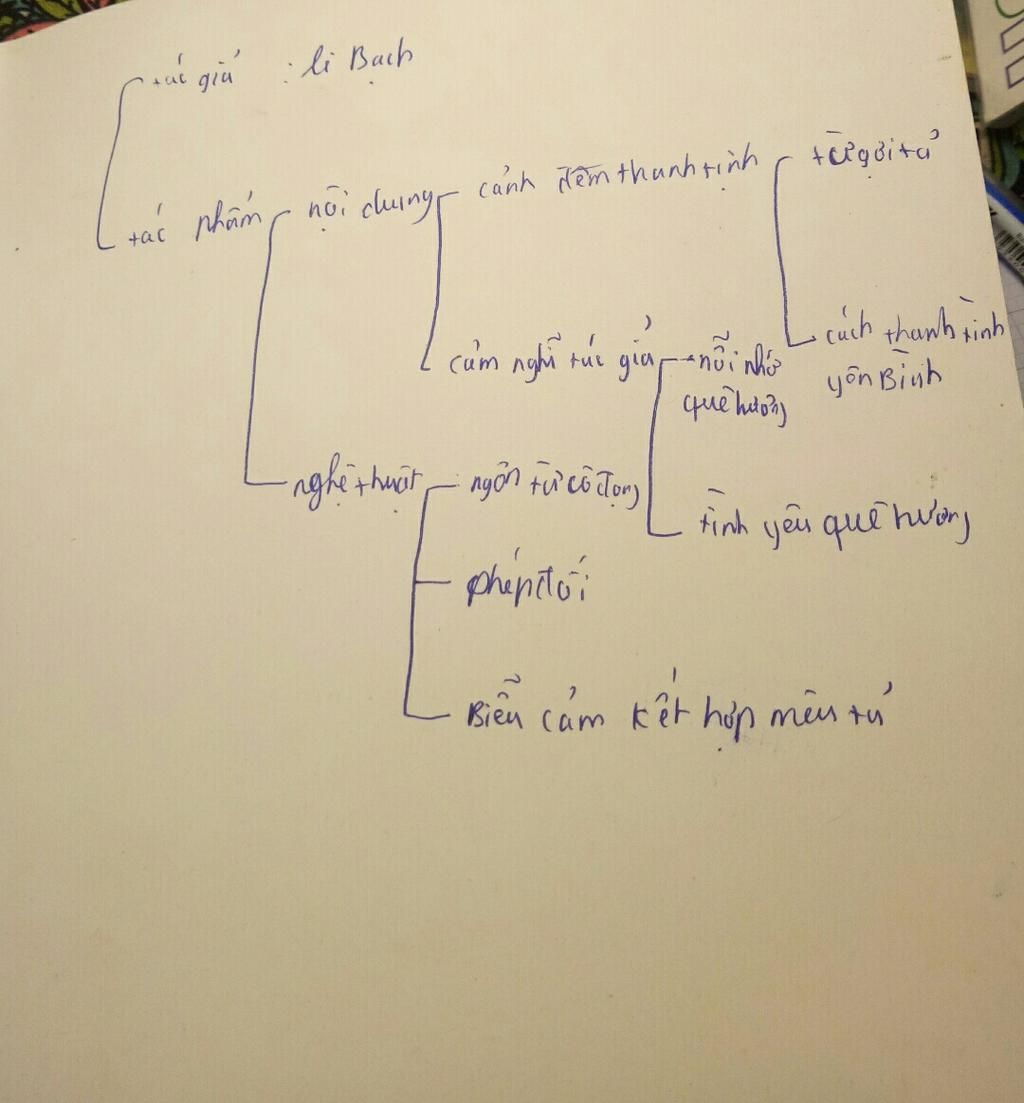 tác giả : li Bạch
tác phẩm
nội dung
cảnh đêm thanh tịnh
từ gợi tả
cách thanh tình
yên Bình
cảm nghĩ tác giả
nỗi nhớ
quê hương
tình yêu quê hương
nghệ thuật
ngôn từ cô đọng
phép đối
Biểu cảm kết hợp miêu tả